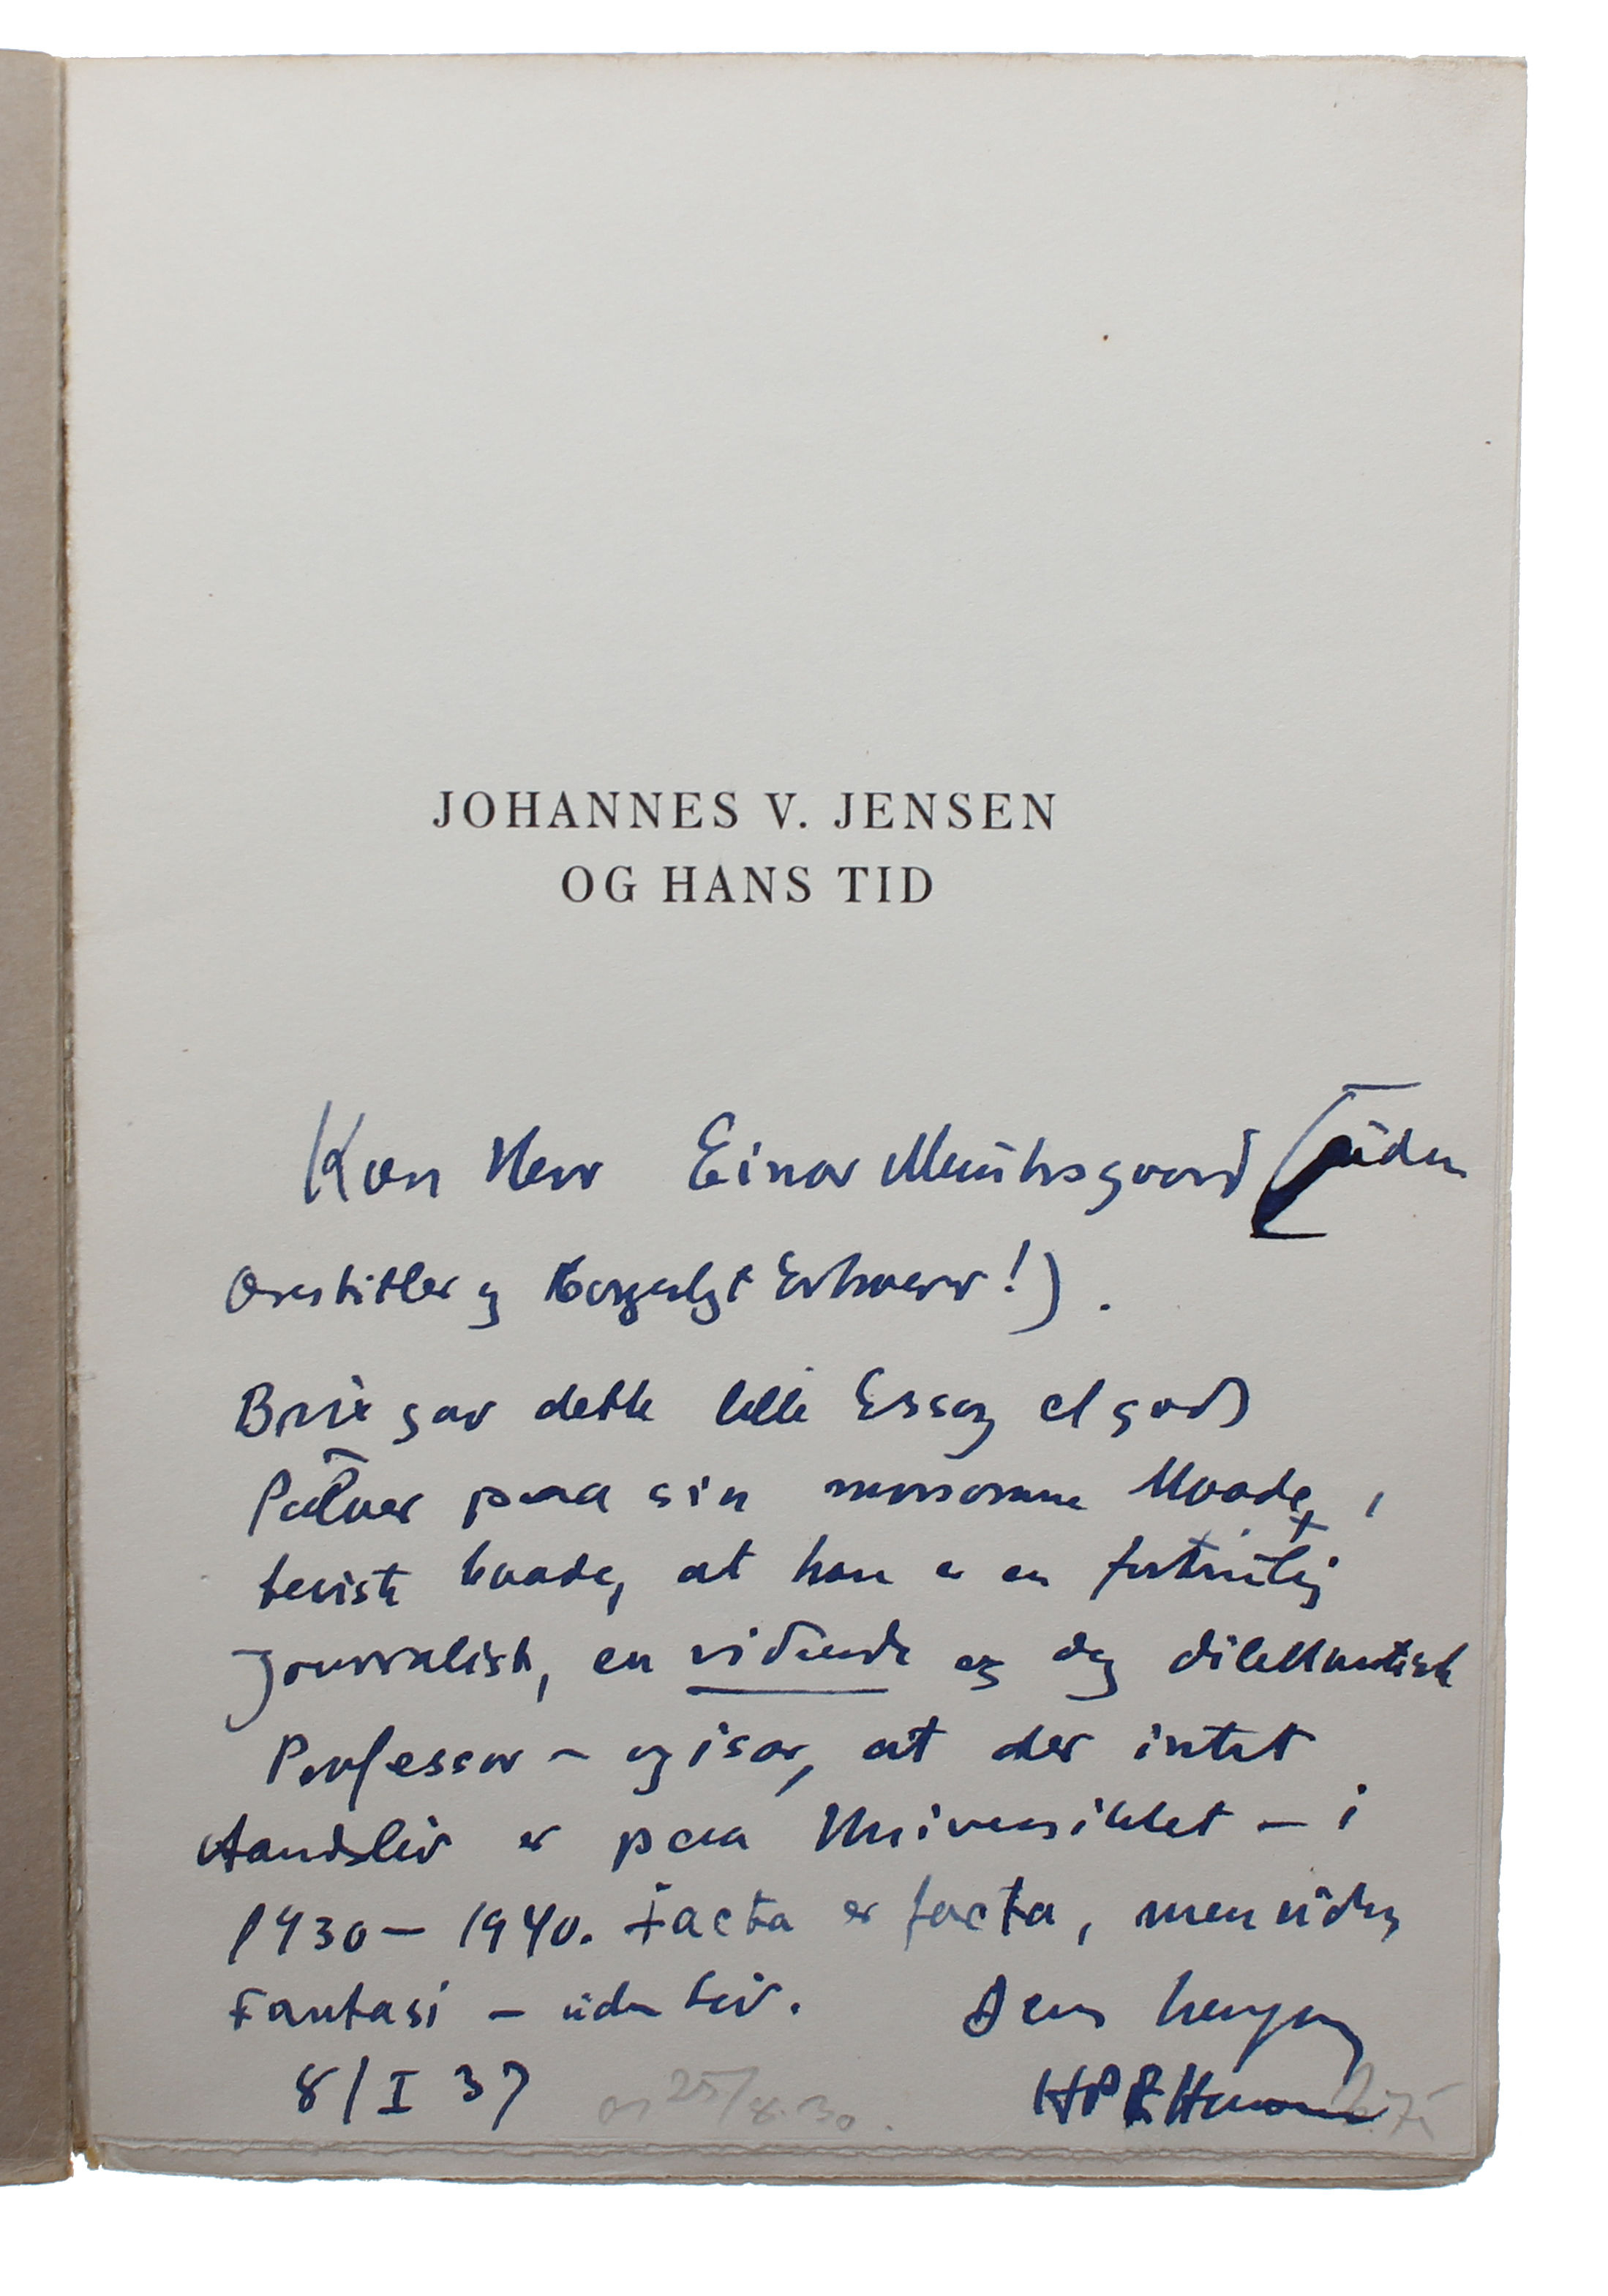 JOHANNES V. JENSEN
OG HANS TID
Kære Herr Einar Munksgaard (uden
og Erhverv!).
Brix gav dette lille Essay et godt
paa sin morsomme Maade,
beviste baade, at han er en
Journalist, en vidende og dog dilettantisk
Professor – og især, at der intet
Aandsliv er paa Universitetet – i
1930 – 1940. Facta er facta, men uden
Fantasi – uden Liv. Deres hengivne
8/I 37
25/8.30.